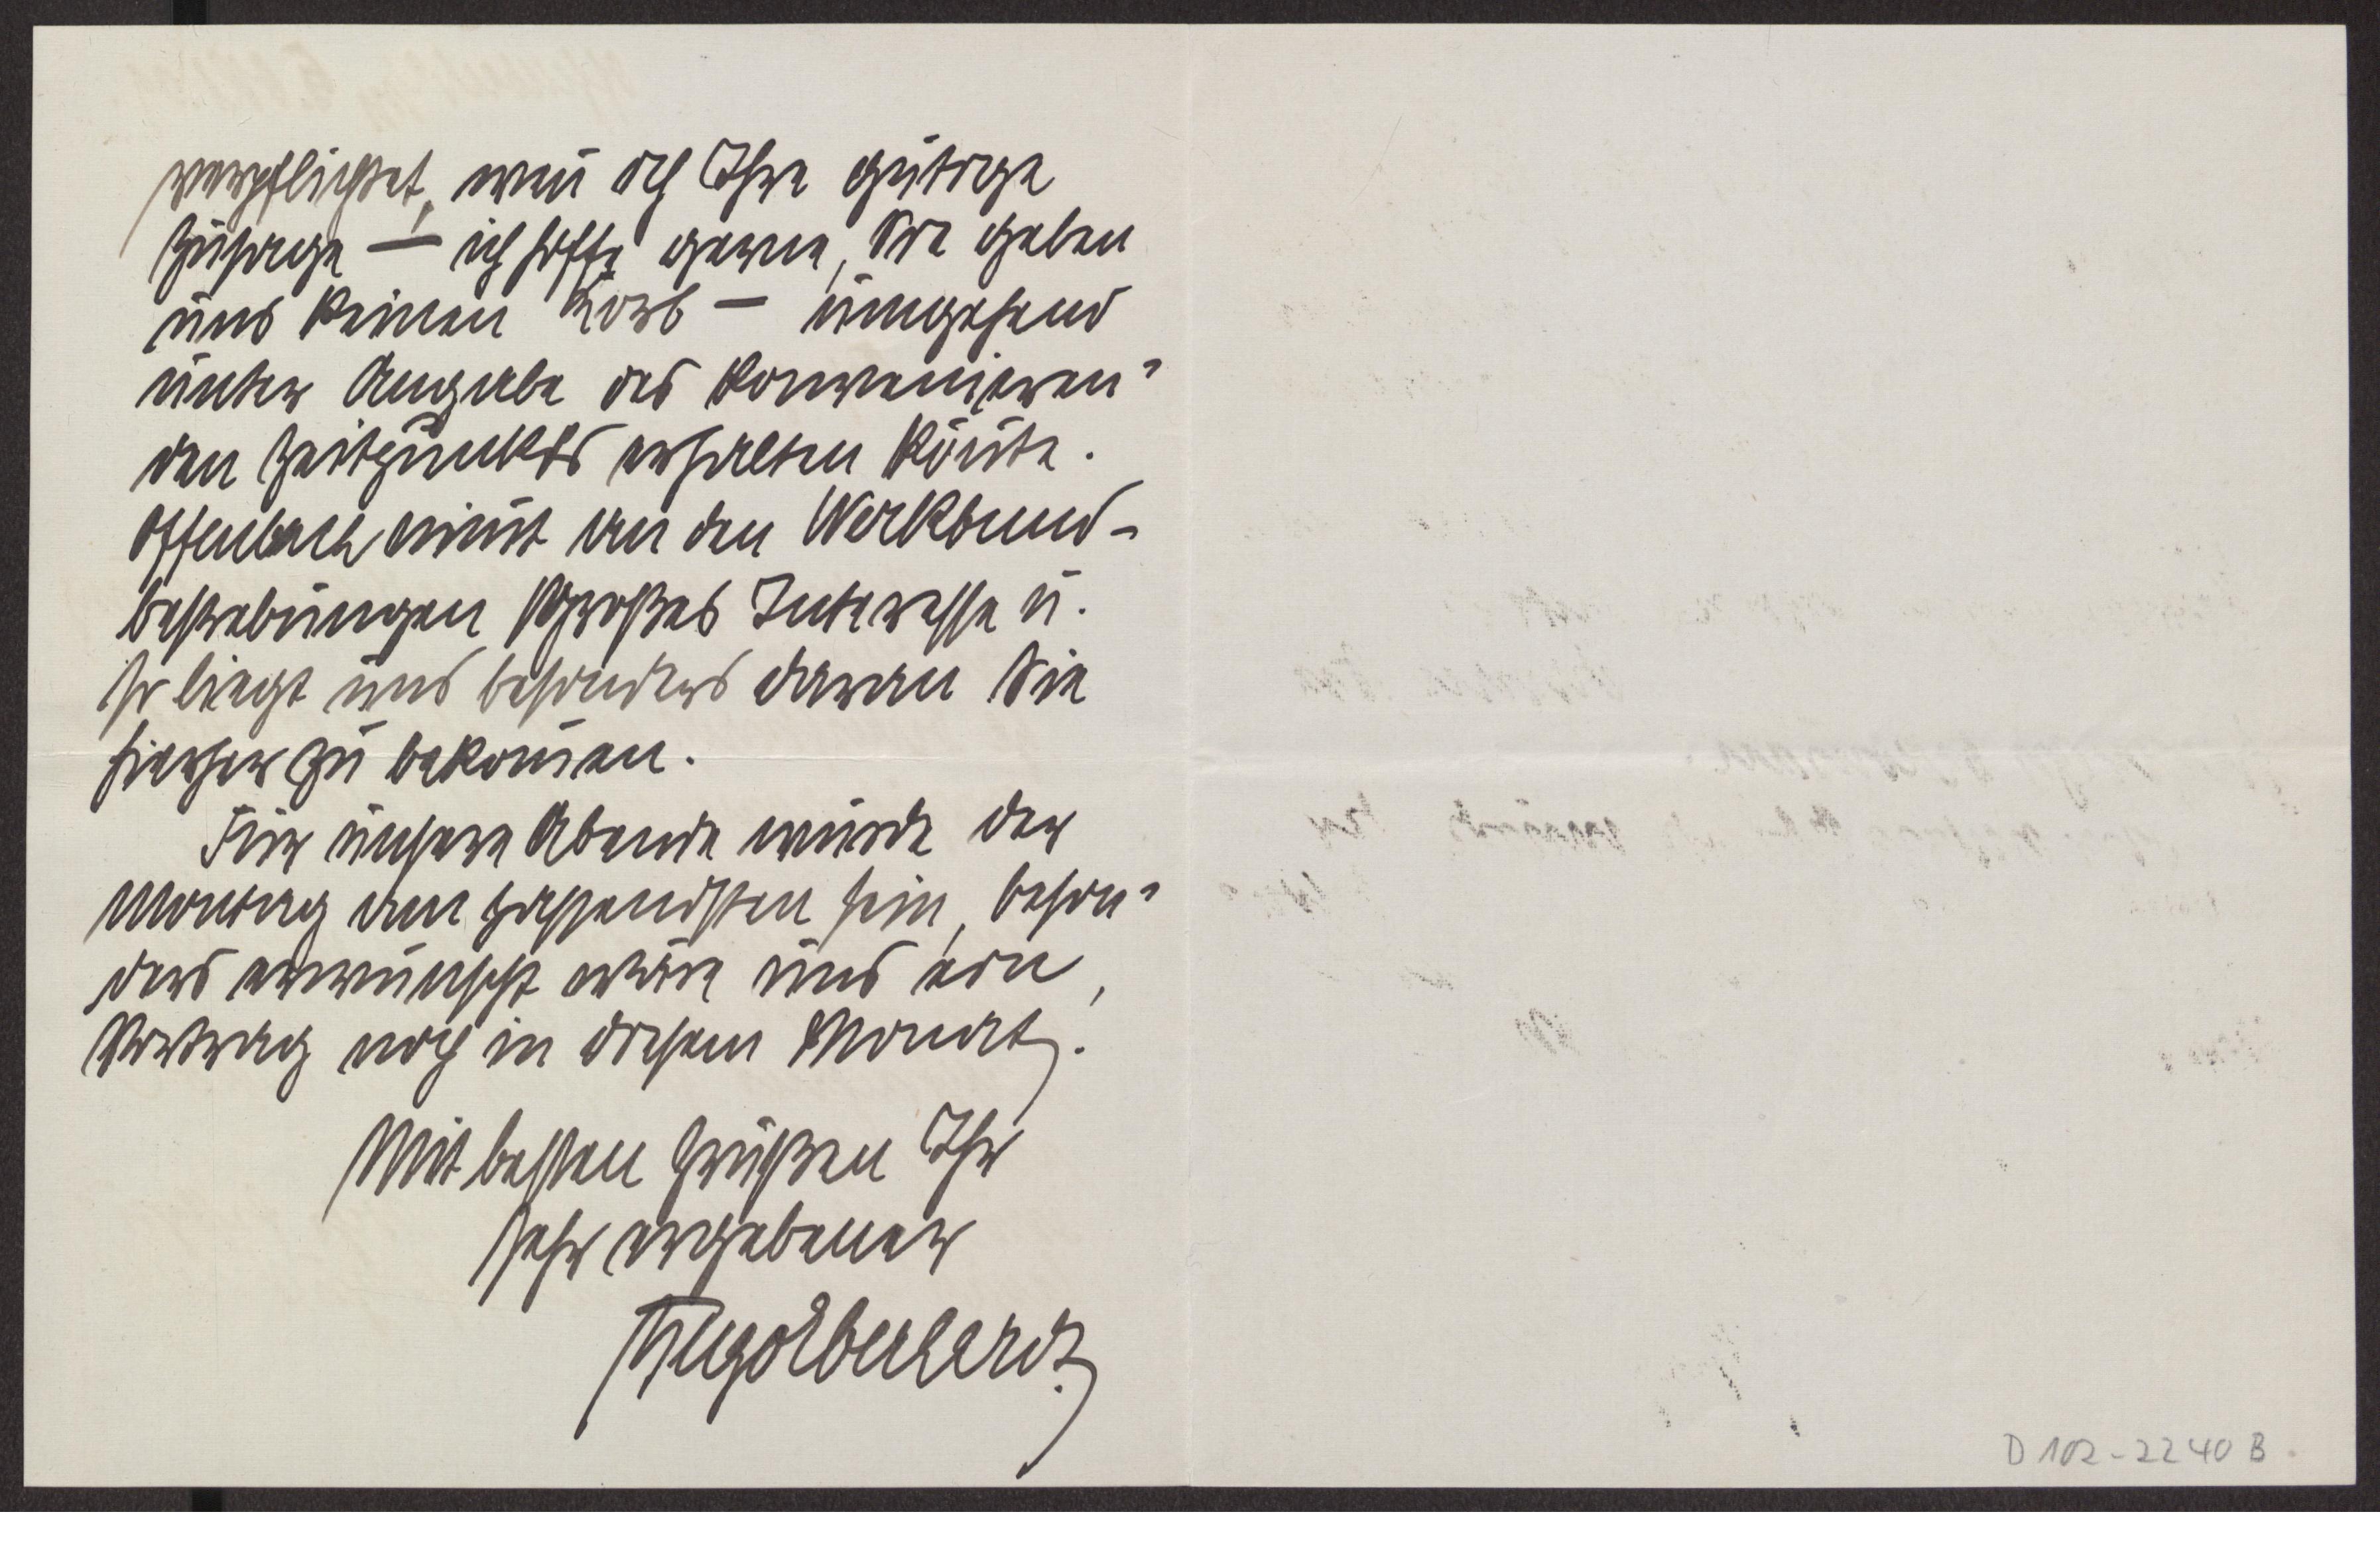 verpflichtet, wen̄ ich Ihre gütige
Zusage — ich hoffe gerne, Sie geben
uns keinen Korb — umgehend
unter Angabe des konvenieren-
den Zeitpunkts erhalten kön̄te.
Offenbach nim̄t an den Werkbund-
bestrebungen großes Interesse u.
es liegt uns besonders daran Sie
hierher zu bekom̄en.
Für unsere Abende würde der
Montag am passendsten sein, beson-
ders erwünscht wäre uns ein
Vortrag noch in diesem Monat.
Mit besten Grüßen Ihr
sehr ergebener
Hugo Eberhardt
D 102-2240 B